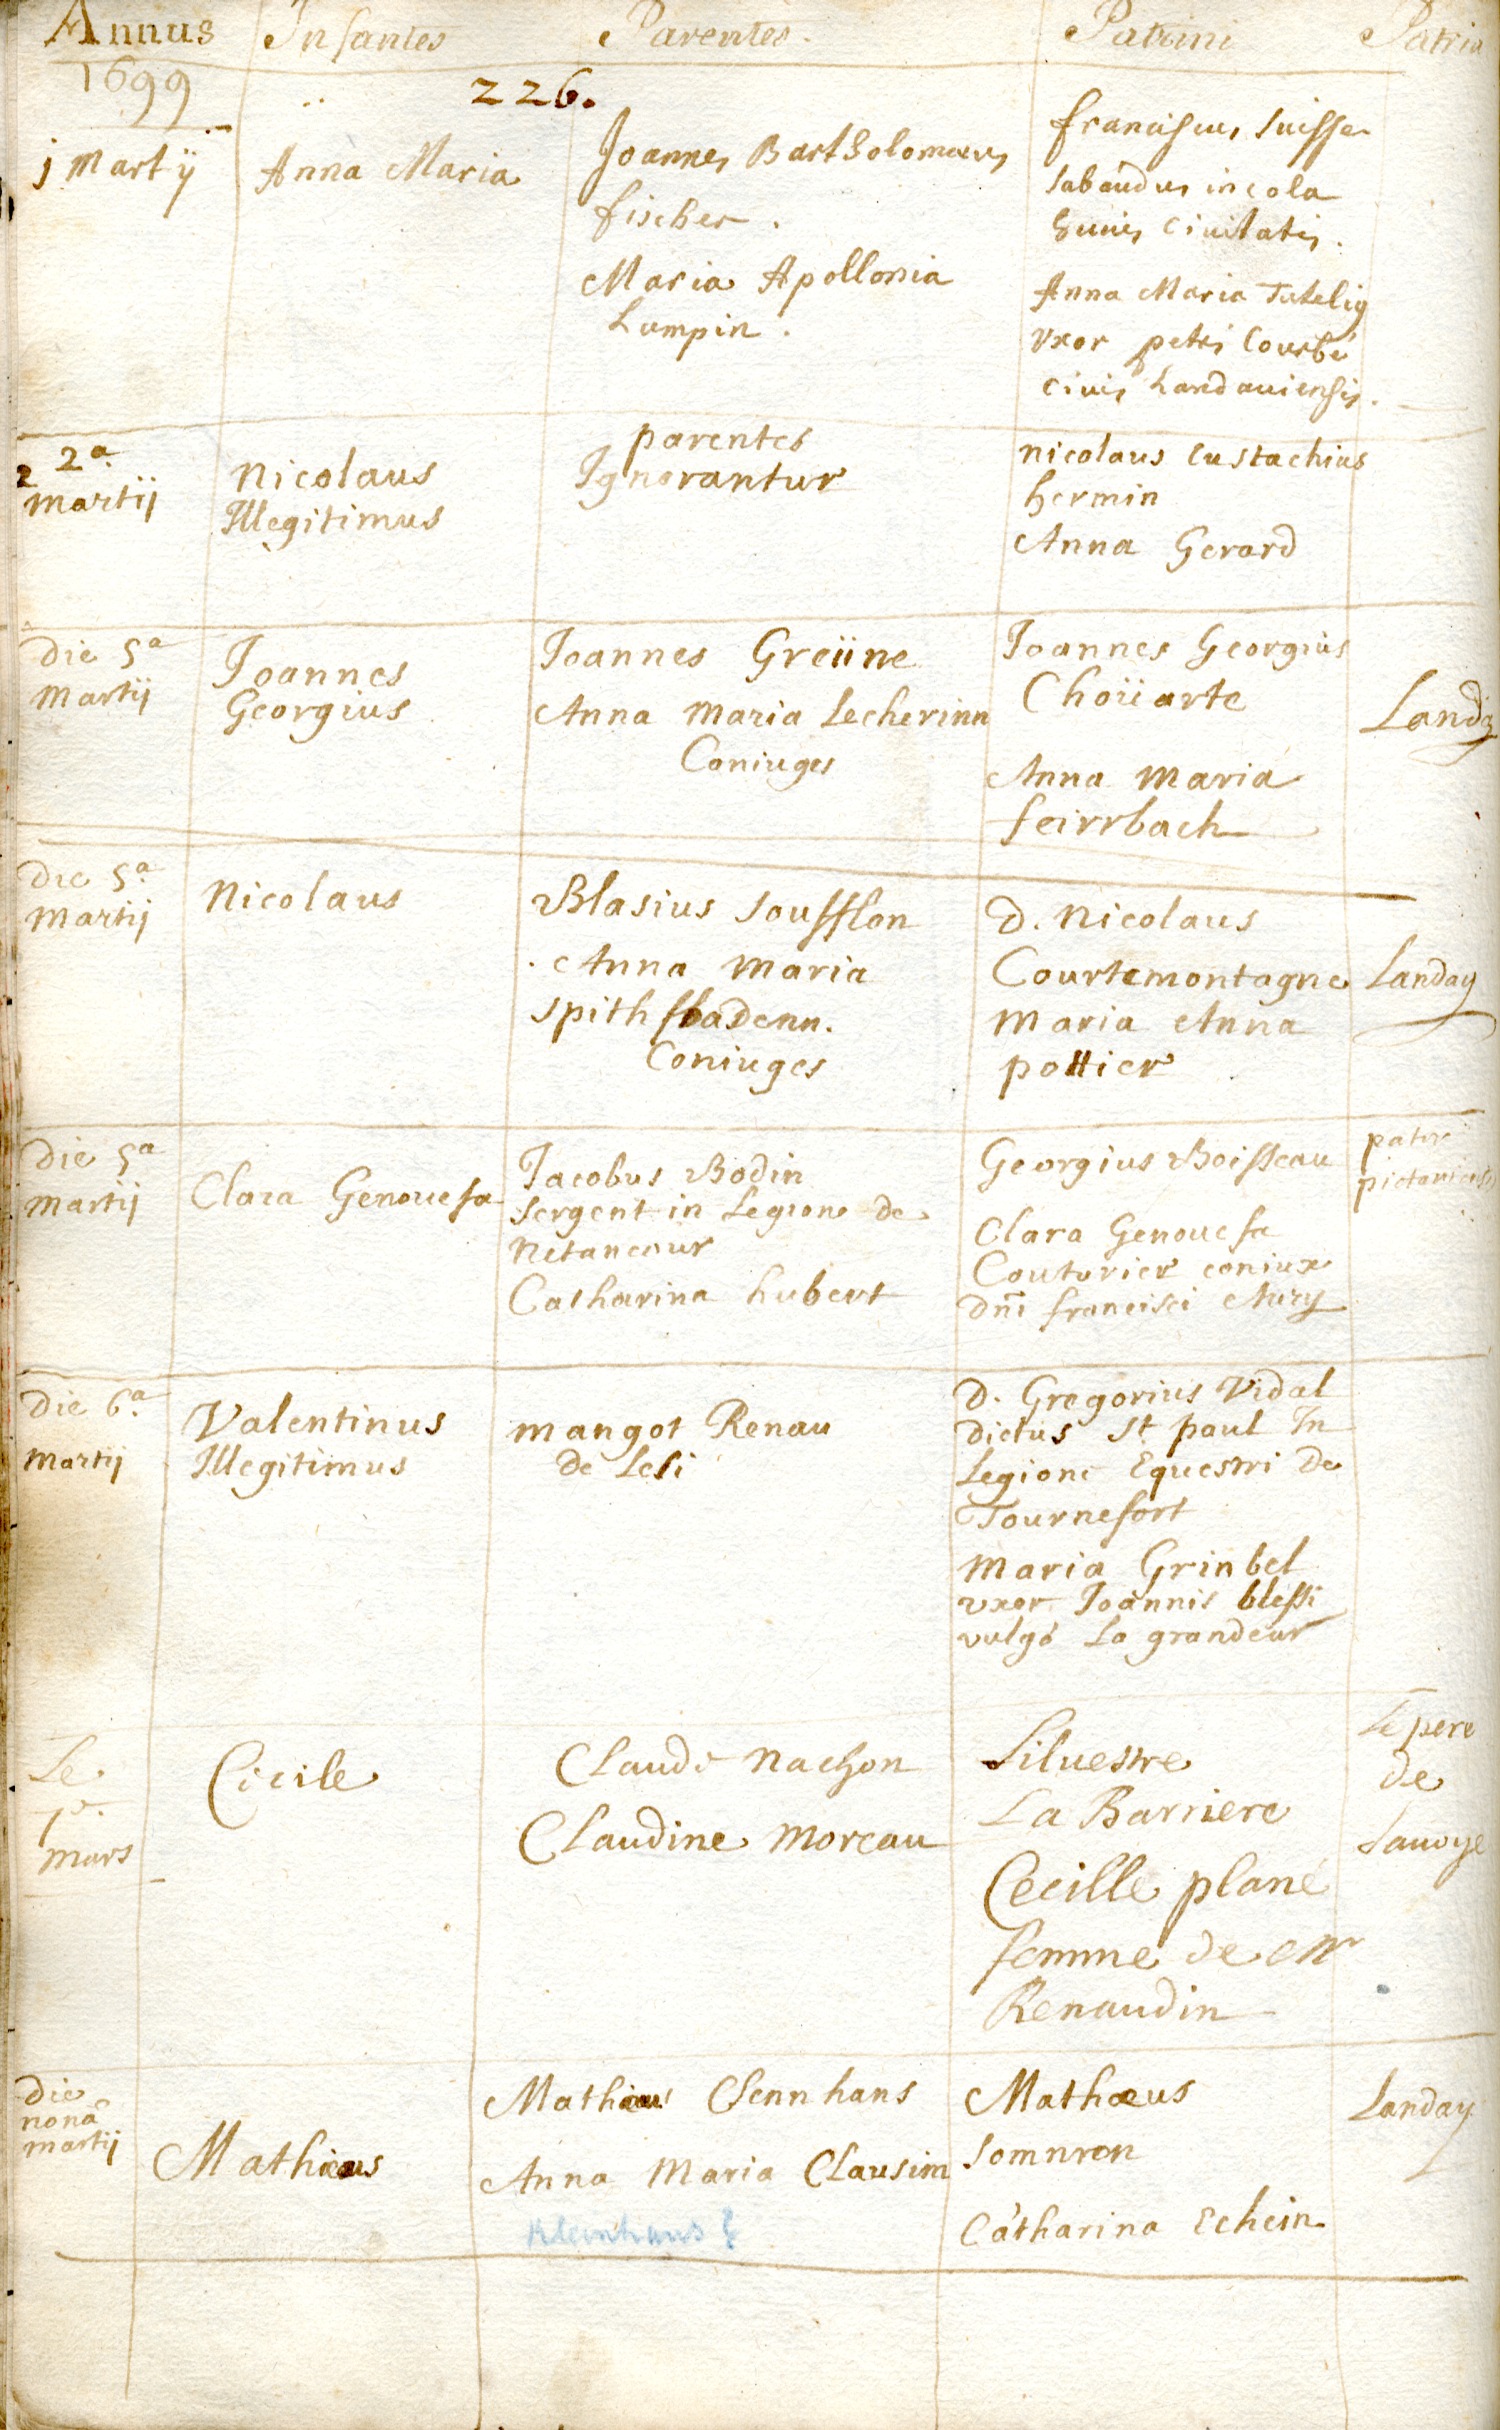 Annus Infantes Parentes. Patrini Patria
1699
226.
j Martij
Anna Maria
Joannes Bartholomæus
fischer.
Maria Apollonia
Lumpin.
franciscus Suisse
Sabaudus incola
huius Ciuitatis.
Anna Maria
Vxor petri Courbé
Ciuis Landauiensis.
2 2a.
martij
Nicolaus
Illegitimus
parentes
Ignorantur
Nicolaus Eustachius
hermin
Anna Gerard
Die 5a
Martij
Joannes
Georgius
Joannes Greüne
Anna Maria Lecherinn
Coniuges
Joannes Georgius
Choüarte
Anna Maria
feirrbach
Land
Die 5a.
Martij
Nicolaus
Blasius Soufflon
Anna Maria
Coniuges
D. Nicolaus
Courtemontagne
Maria Anna
pottier
Landay
Die 5a
Martij
Clara Genouefa
Jacobus Bodin
Sergent in Legione de
Netancour
Catharina hubert
Georgius Boisseau
Clara Genouefa
Couturier coniux
Dni francisci
pater
Die 6a.
Martij
Valentinus
Illegitimus
mangot Renau
de Lesi
D. Gregorius Vidal
Dictus St paul In
Legione Equestri De
Tournefort
Maria Grinbel
vxor Joannis blessi
vulgó La grandeur
Le
mars
Cicile
Claude Nachon
Claudine Moreau
Siluestre
La Barriere
Cecille plané
femme de Mr
Renaudin
Le pere
de
Sauoye
Die
nonâ
martij
Mathæus
Mathæus Clennhans
Anna Maria Clausim
Kleinhans
Mathæus
Somnron
Catharina Echein
Landay